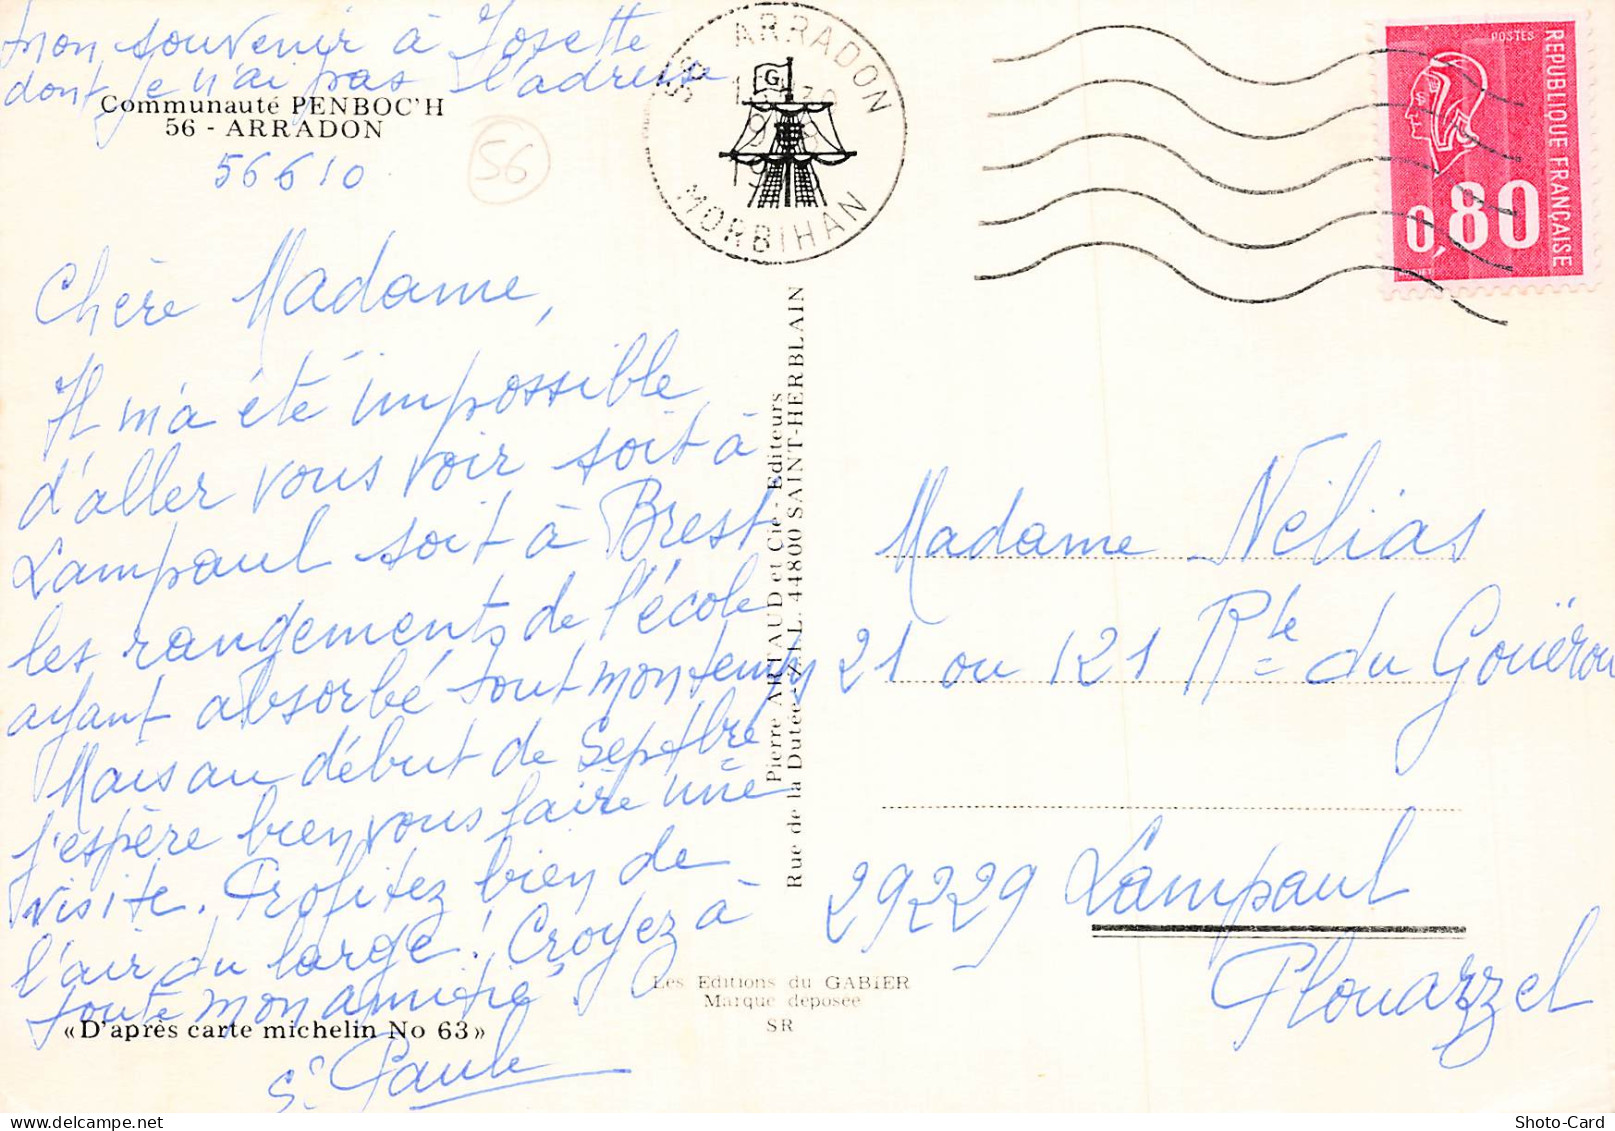 mon souvenir à Josette
dont je n'ai pas l'adresse
Communauté PENBOC'H
56 - ARRADON
56610
56
Chère Madame,
Il m'a été impossible
d'aller vous voir soit à
Lampaul soit à Brest
les rangements de l'école
ayant absorbé tout mon temps
Mais au début de Septbre
j'espère bien vous faire une
visite. Profitez bien de
l'air du large ! Croyez à
toute mon amitié
«D'après carte michelin No 63»
Sr Paule
56 ARRADON
G
MORBIHAN
Pierre ARTAUD et Cie - Editeurs
Rue de la Dutée - Z.I.L. 44800 SAINT-HERBLAIN
Les Editions du GABIER
Marque déposée
SR
POSTES
REPUBLIQUE FRANÇAISE
0,80
Madame Nélias
21 ou 121 Rte du Gouërou
29229 Lampaul
Plouarzel
Shoto-Card